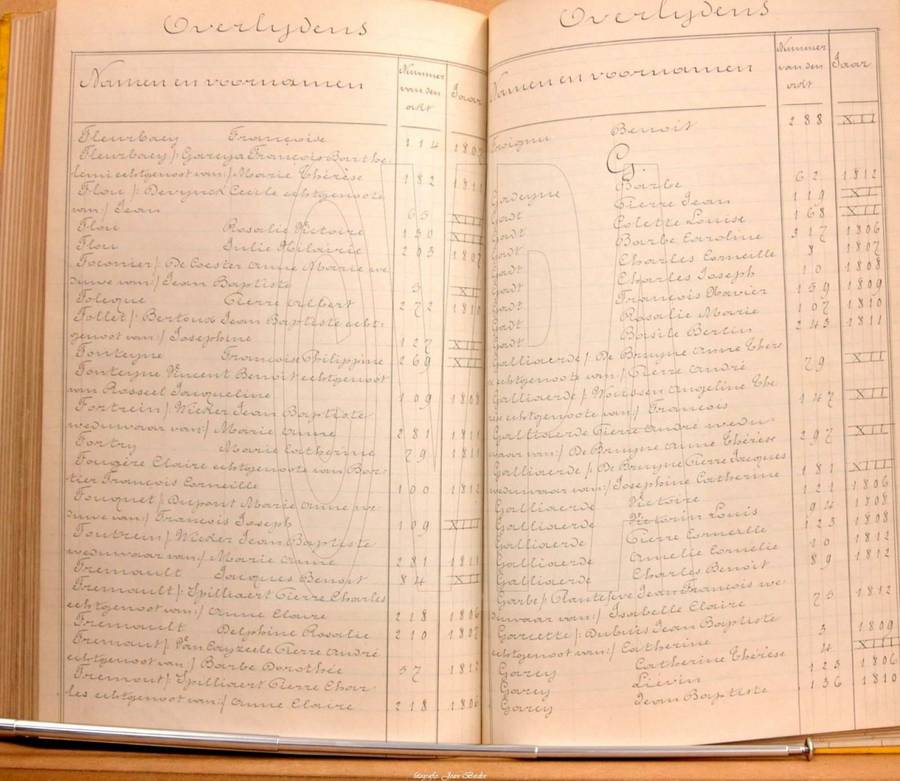 Overlydens
Namen en voornamen
Nummer van den akt
Jaar
Fleurbaey Françoise 114 180
Fleurbaey /: Gareya François Barthe-
lemi echtgenoot van :/ Marie Thérèse 182 1811
Flou /: Devynck Cecile echtgenoote
van :/ Jean 65 XII
Flou Rosalie Victoire 130 XII
Flou Julie Hilairie 203 1807
Foconier /: De Coester Anne Marie we-
duwe van :/ Jean Baptiste 5 XII
Foleque Pierre Albert 272 1810
Follet /: Bertoux Jean Baptiste echt-
genoot van :/ Josephine 127 XII
Fonteyne François Philippine 269 XII
Fonteyne Vincent Benoit echtgenoot
van Rosseel Jacqueline 109 1808
Fortrein /: Wieder Jean Baptiste
weduwaar van :/ Marie Anne 281 1811
Fortry Marie Catherine 79 1811
Fougère Claire echtgenoote van Bou-
tier François Corneille 100 1812
Fouquet /: Dupont Marie Anne we-
duwe van :/ François Joseph 109 XIII
Foutrein /: Wieder Jean Baptiste
weduwaar van :/ Marie Anne 281 1811
Fremault Jacques Benoit 84 XII
Fremault /: Spilliaert Pierre Charles
echtgenoot van :/ Anne Claire 218 1806
Fremault Delphine Rosalie 210 1807
Fremaut /: Van Cayzeele Pierre André
echtgenoot van :/ Barbe Dorothée 37 1812
Fremout /: Spilliaert Pierre Char-
les echtgenoot van :/ Anne Claire 218 1806
Overlydens
Namen en voornamen
Nummer van den akt
Jaar
Benoit 288 XII
G.
Gadeyne Barbe 62 1812
Gadt Pierre Jean 119 XII
Gadt Colette Louise 168 XII
Gadt Barbe Caroline 317 1806
Gadt Charles Corneille 8 1807
Gadt Charles Joseph 10 1808
Gadt François Xavier 159 1809
Gadt Rosalie Marie 107 1810
Gadt Basile Bertin 243 1811
Galliaerde /: De Bruyne Anne There-
se echtgenoote van :/ Pierre André 79 XII
Galliaerde /: Moussen Angeline The-
rese echtgenoote van :/ François 147 XII
Galliaerde Pierre André wedu-
waar van :/ De Bruyne Anne Thérèse 297 XII
Galliaerde /: De Bruyne Pierre Jacques
weduwaar van :/ Josephine Catherine 181 XIII
Galliaerde Victoire 121 1806
Galliaerde Victorin Louis 94 1808
Galliaerde Pierre Corneille 123 1808
Galliaerde Amelie Cornelie 10 1812
Galliaerde Charles Benoit 89 1812
Garbe /: Plantefeve Jean François we-
duwaar van :/ Isabelle Claire 75 1812
Garcette /: Dubuis Jean Baptiste
echtgenoot van :/ Catherine 3 1809
Garey Catherine Thérèse 4 XIII
Garey Liévin 123 1806
Garey Jean Baptiste 136 1810